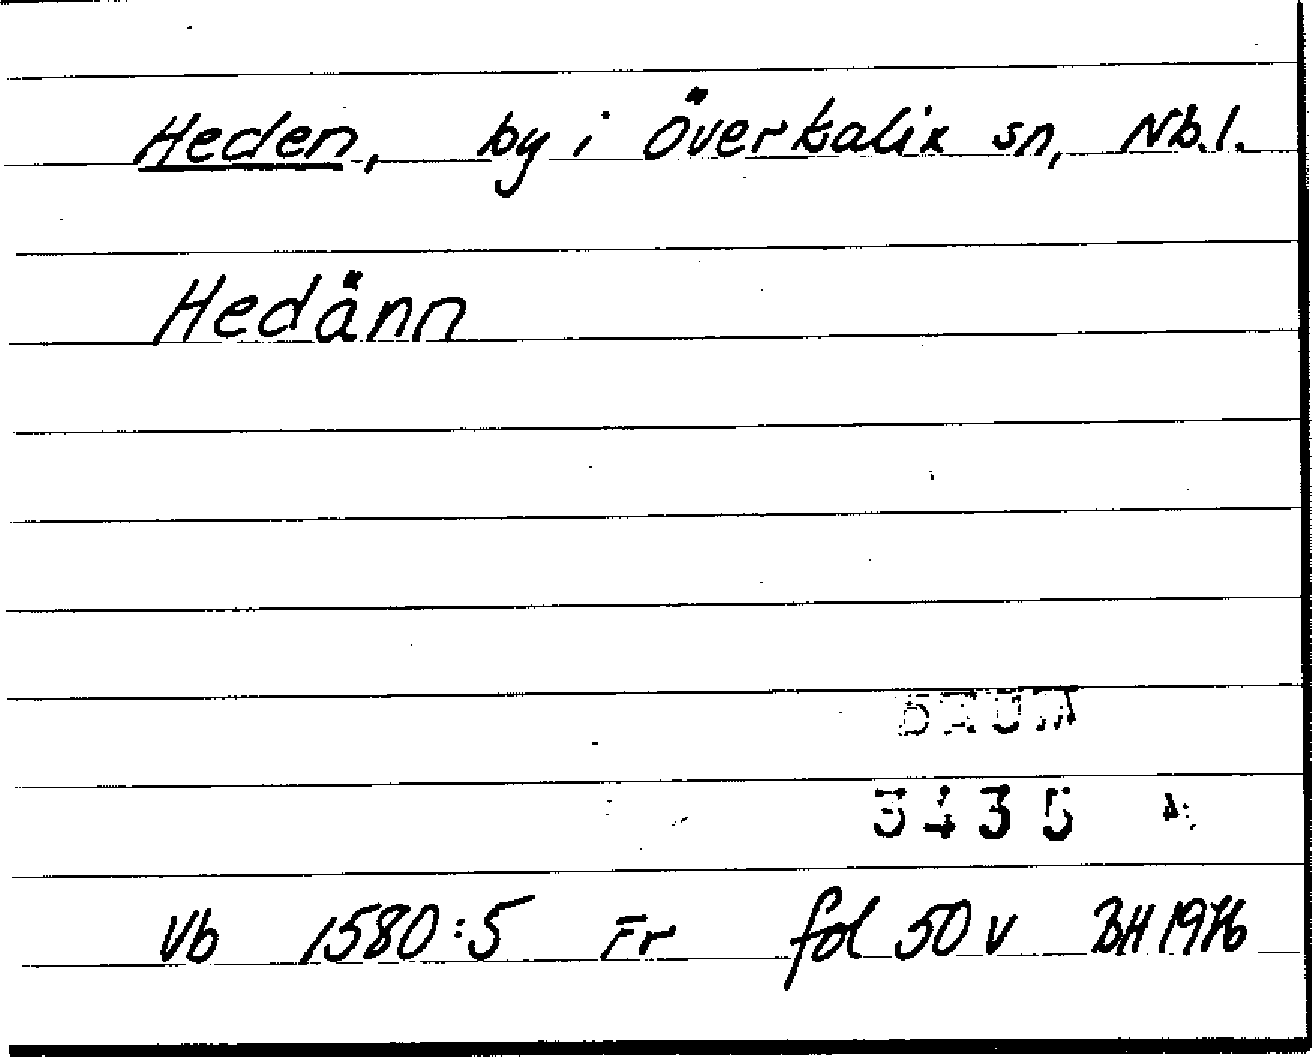 Heden, by i Överkalix sn, Nb.l.
Hedänn
DAUM
3435
Vb 1580:5 Fr fol 50 v BH 1976